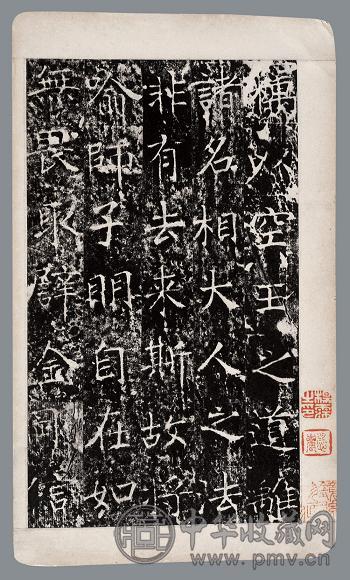 竊以空王之道離
諸名相大人之法
非有去来斯故將
喻師子明自在如
無畏取譬金剛信
中华收藏网
www.pmv.cn